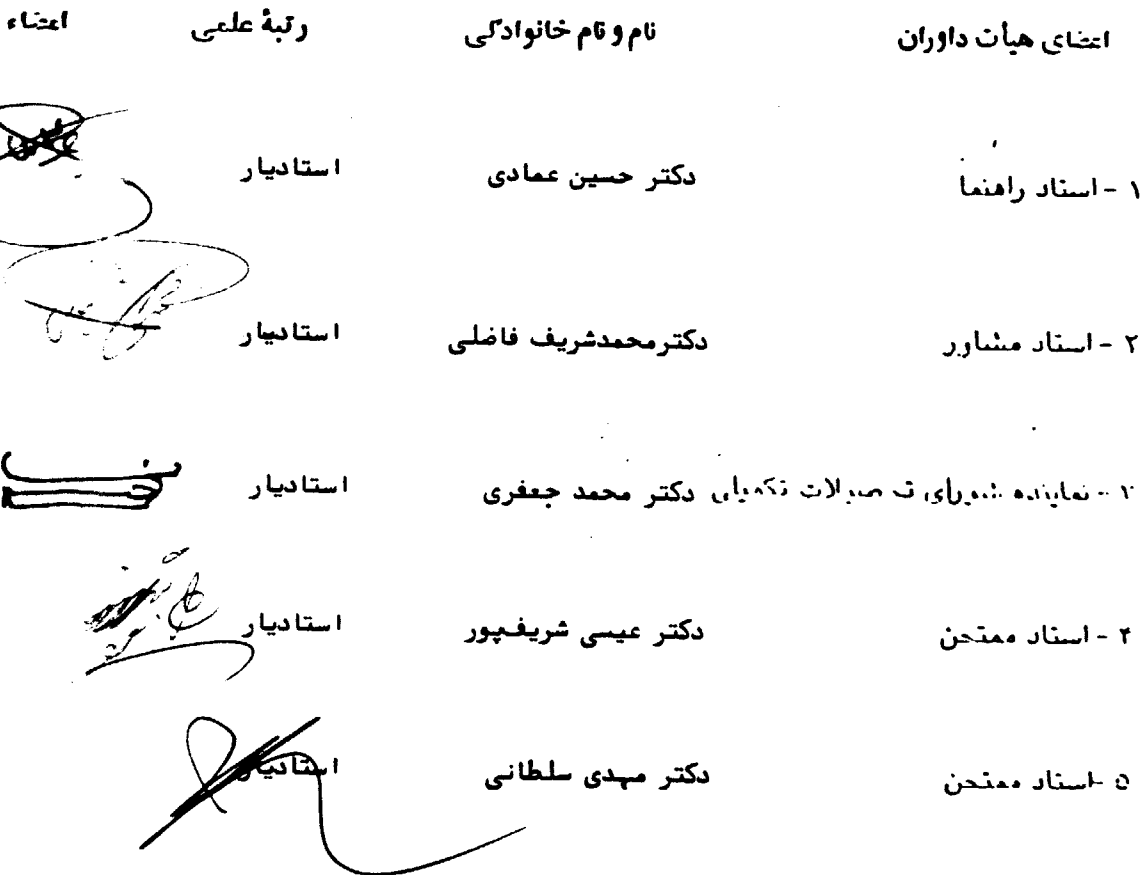 اعضای هیأت داوران نام و نام خانوادگی رتبهٔ علمی امضاء
۱ - استاد راهنما دکتر حسین عمادی استادیار
۲ - استاد مشاور دکتر محمدشریف فاضلی استادیار
۳ - نماینده شورای تحصیلات تکمیلی دکتر محمد جعفری استادیار
۴ - استاد ممتحن دکتر عیسی شریف‌پور استادیار
۵ - استاد ممتحن دکتر مهدی سلطانی استادیار